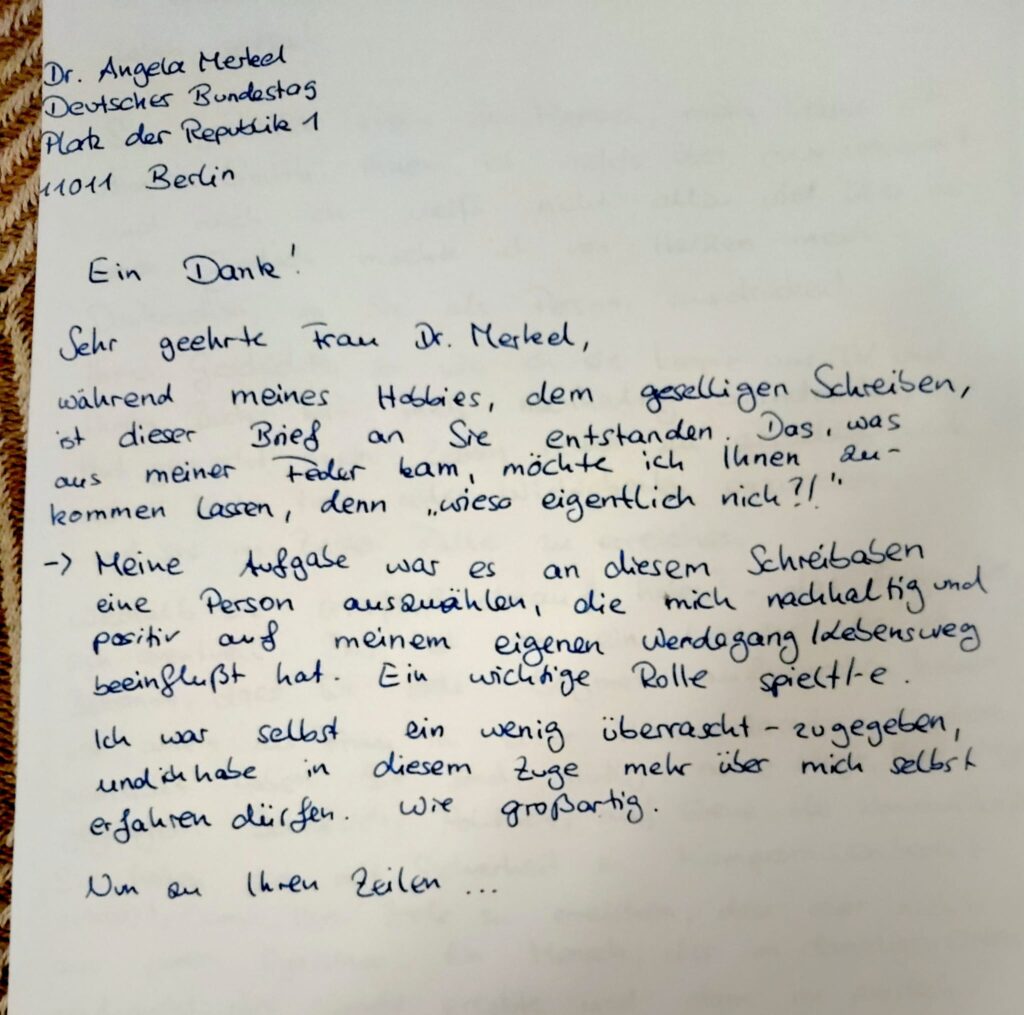 Dr. Angela Merkel
Deutscher Bundestag
Platz der Republik 1
11011 Berlin
Ein Dank!
Sehr geehrte Frau Dr. Merkel,
während meines Hobbies, dem geselligen Schreiben,
ist dieser Brief an Sie entstanden. Das, was
aus meiner Feder kam, möchte ich Ihnen zu-
kommen lassen, denn „wieso eigentlich nich?!"
-> Meine Aufgabe war es an diesem Schreibaben
eine Person auszuwählen, die mich nachhaltig und
positiv auf meinem eigenen Werdegang / Lebensweg
beeinflußt hat. Ein wichtige Rolle spielt/-e.
Ich war selbst ein wenig überrascht - zugegeben,
und ich habe in diesem Zuge mehr über mich selbst
erfahren dürfen. Wie großartig.
Nun zu Ihren Zeilen ...